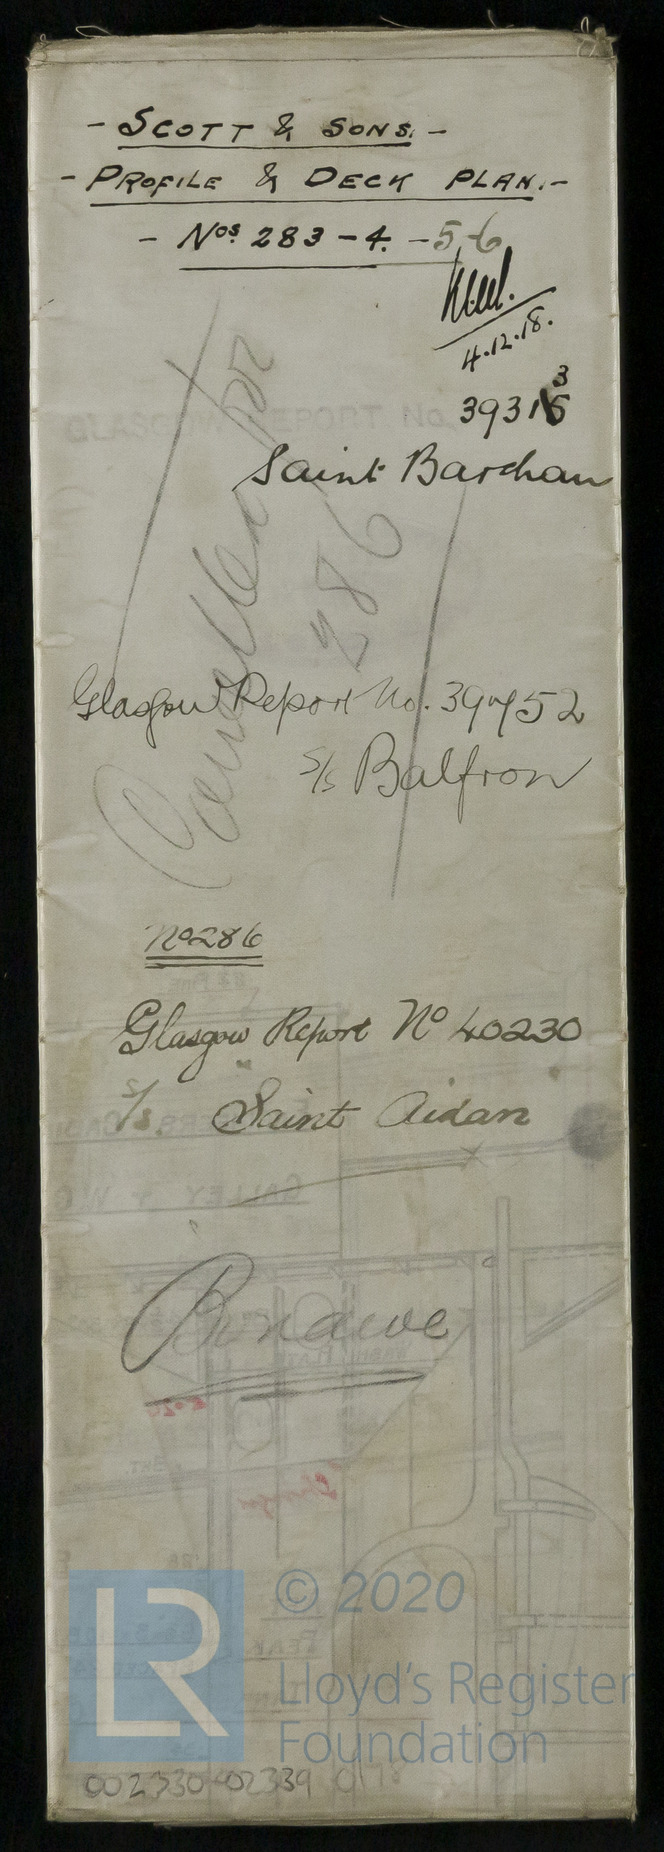 - SCOTT & SONS. -
- PROFILE & DECK PLAN. -
- Nos. 283 - 4. - 5-6
4.12.18.
3
39315
Saint Barchan
Cancelled for
286
Glasgow Report No. 39752
S/S Balfron
No 286
Glasgow Report No 40230
S/S Saint Aidan
Bonawe
LR
© 2020
Lloyd's Register
Foundation
002330-02339 0178